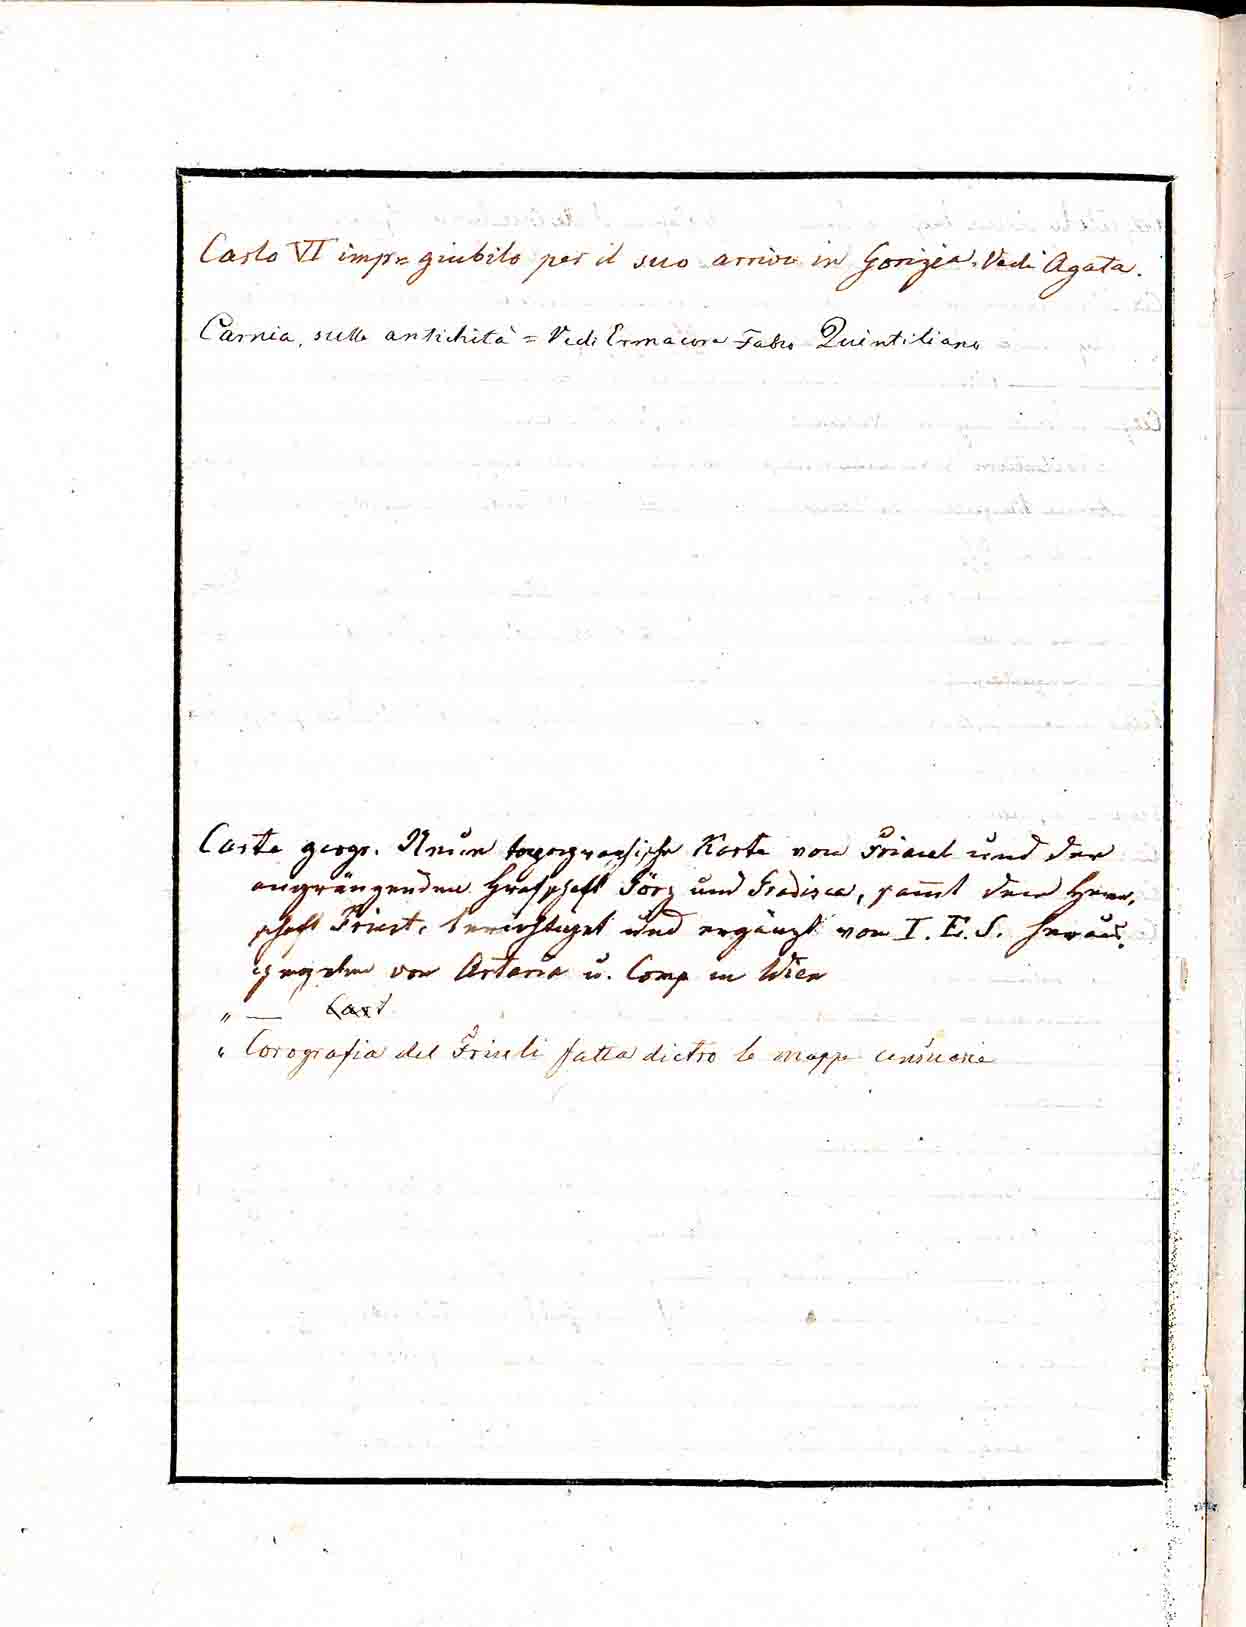 Carlo VI imp= giubilo per il suo arrivo in Gorizia. Vedi Agata.
Carnia, sulle antichità = Vedi Ermacora Fabio Quintiliano
Carte geogr. Neue topographische Karte von Friaul und der
angränzenden Grafschaft Görz und Gradisca, sammt dem Herr,
schaft Triest, berichtiget und ergänzt von I. E. S. heraus,
gegeben von Artaria u. Comp in Wien
" — Cart
" Corografia del Friuli fatta dietro le mappe censuarie